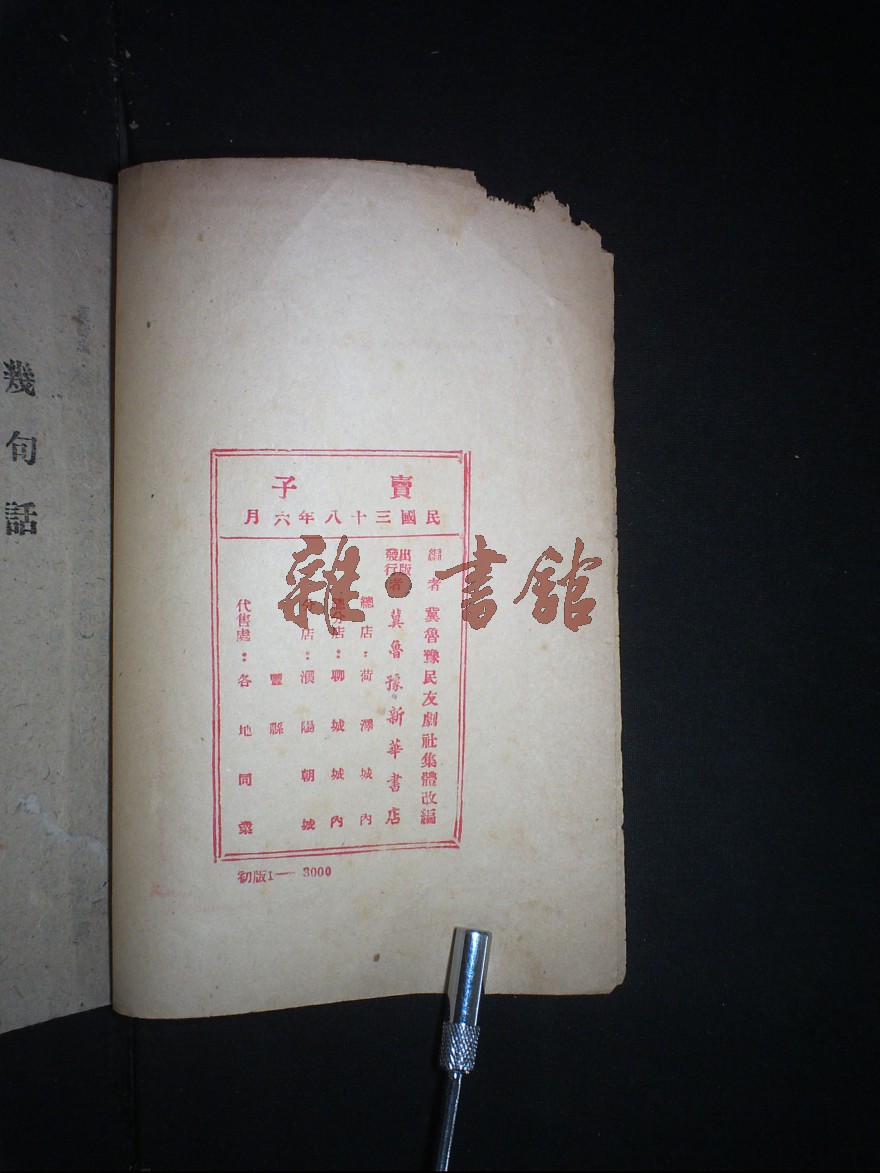 賣子
民國三十八年六月
編者 冀魯豫民友劇社集體改編
出版發行者 冀魯豫新華書店
總店：荷澤城內
分店：聊城城內
分店：濮陽朝城
豐縣
代售處：各地同業
初版1—3000
幾句話
雜·書館